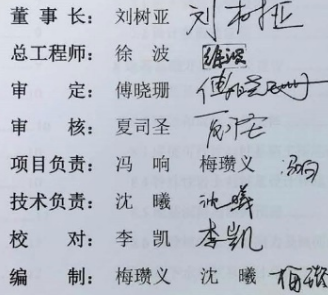 董 事 长： 刘树亚 刘树亚
总工程师： 徐 波 徐波
审 定： 傅晓珊 傅晓珊
审 核： 夏司圣 夏司圣
项目负责： 冯 响 梅瓒义 冯响
技术负责： 沈 曦 沈曦
校 对： 李 凯 李凯
编 制： 梅瓒义 沈 曦 梅瓒